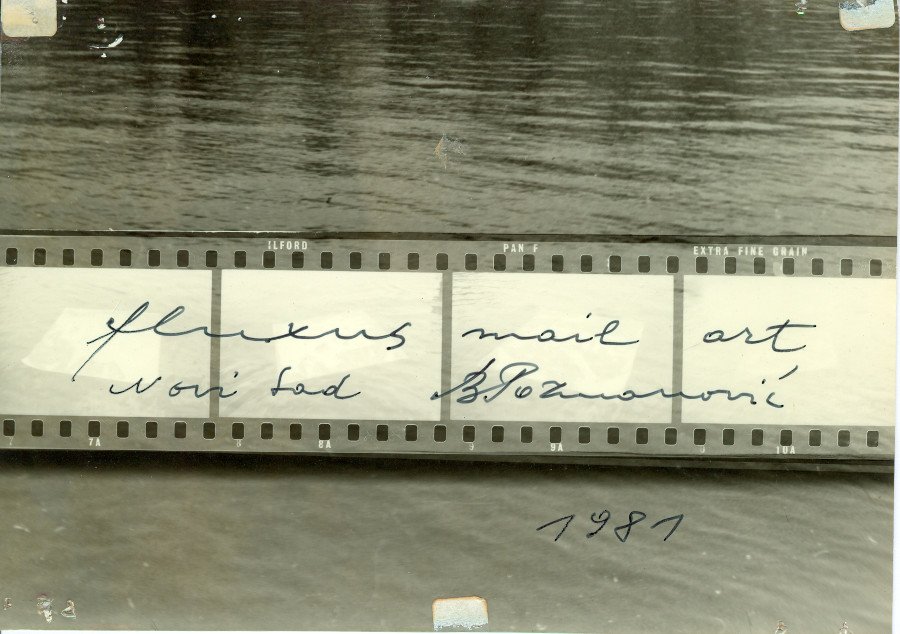 ILFORD PAN F EXTRA FINE GRAIN
fluxus mail art
Novi Sad B. Pozmanović
7 7A 8 8A 9 9A 10A
1981